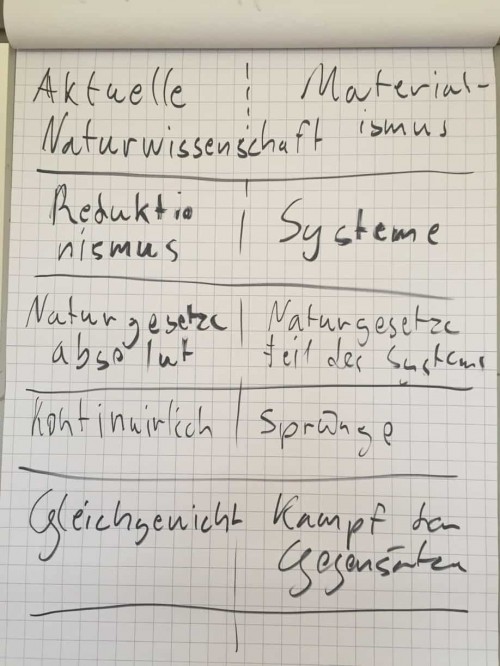 Aktuelle
Naturwissenschaft
Material-
ismus
Reduktio
nismus
Systeme
Naturgesetze
absolut
Naturgesetze
teil des Systems
Kontinuirlich
Sprünge
Gleichgewicht
Kampf der
Gegensätze